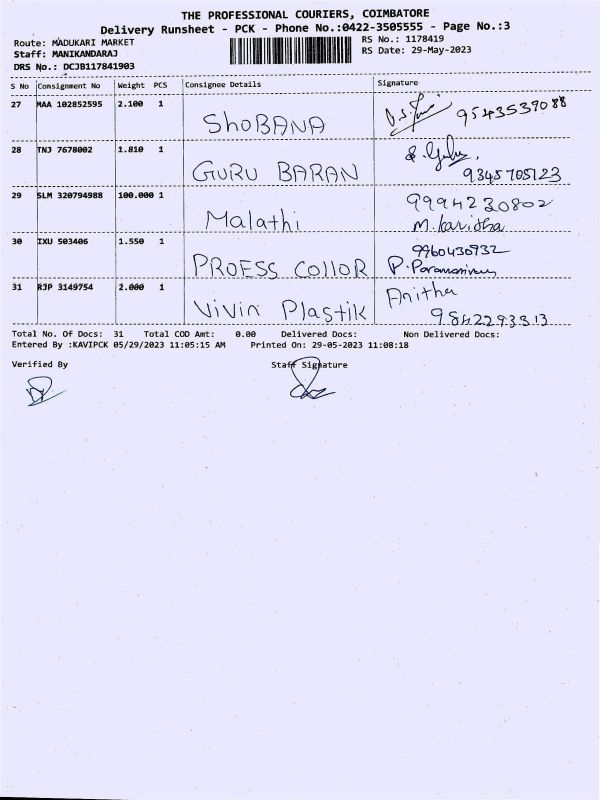 THE PROFESSIONAL COURIERS, COIMBATORE
Delivery Runsheet - PCK - Phone No.:0422-3505555 - Page No.:3
Route: MADUKARI MARKET
Staff: MANIKANDARAJ
DRS No.: DCJB117841903
RS No.: 1178419
RS Date: 29-May-2023
S No Consignment No Weight PCS Consignee Details Signature
27 MAA 102852595 2.100 1 ShoBANA 9543539088
28 TNJ 7678002 1.810 1 GURU BARAN 9345705123
29 SLM 320794988 100.000 1 Malathi 9994230802
M.kavitha
30 IXU 503406 1.550 1 PROESS COllOR 9960430932
P.
31 RJP 3149754 2.000 1 Vivin Plastik Anitha
9842293313
Total No. Of Docs: 31 Total COD Amt: 0.00 Delivered Docs: Non Delivered Docs:
Entered By :KAVIPCK 05/29/2023 11:05:15 AM Printed On: 29-05-2023 11:08:18
Verified By Staff Signature